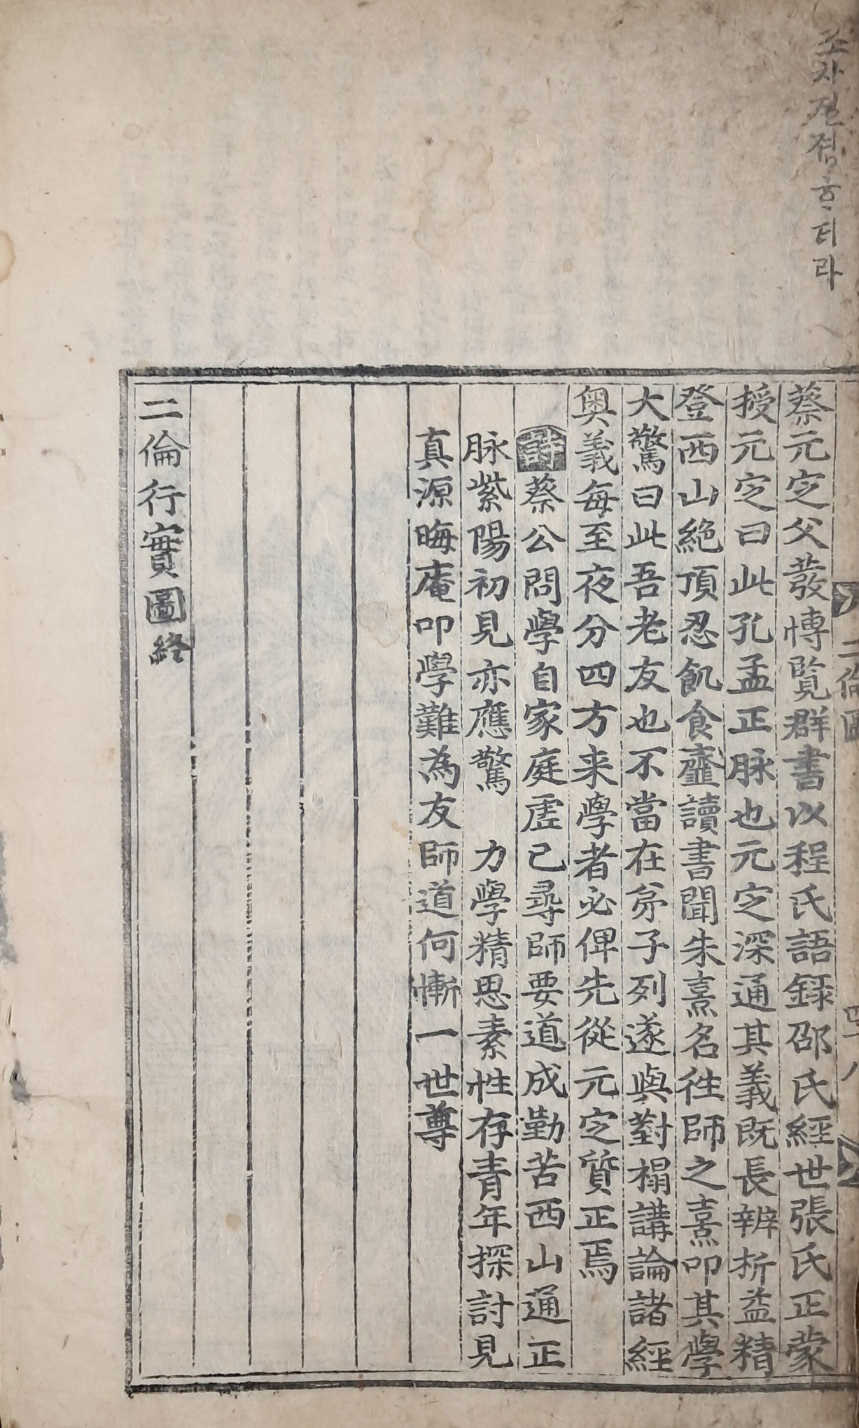 조차질졍ᄒᆞ터라
二倫圖
四十八
蔡元定父發愽覽群書以程氏語錄邵氏經世張氏正蒙
授元定曰此孔孟正脉也元定深通其義既長辨析益精
登西山絶頂忍飢食虀讀書聞朱熹名徃師之熹叩其學
大驚曰此吾老友也不當在弟子列遂與對榻講論諸經
奥義每至夜分四方来學者必俾先從元定質正焉
詩 蔡公問學自家庭虚己尋師要道成勤苦西山通正
脉紫陽初見亦應驚 力學精思素性存青年探討見
真源晦庵叩學難為友師道何慚一世尊
二倫行實圖終